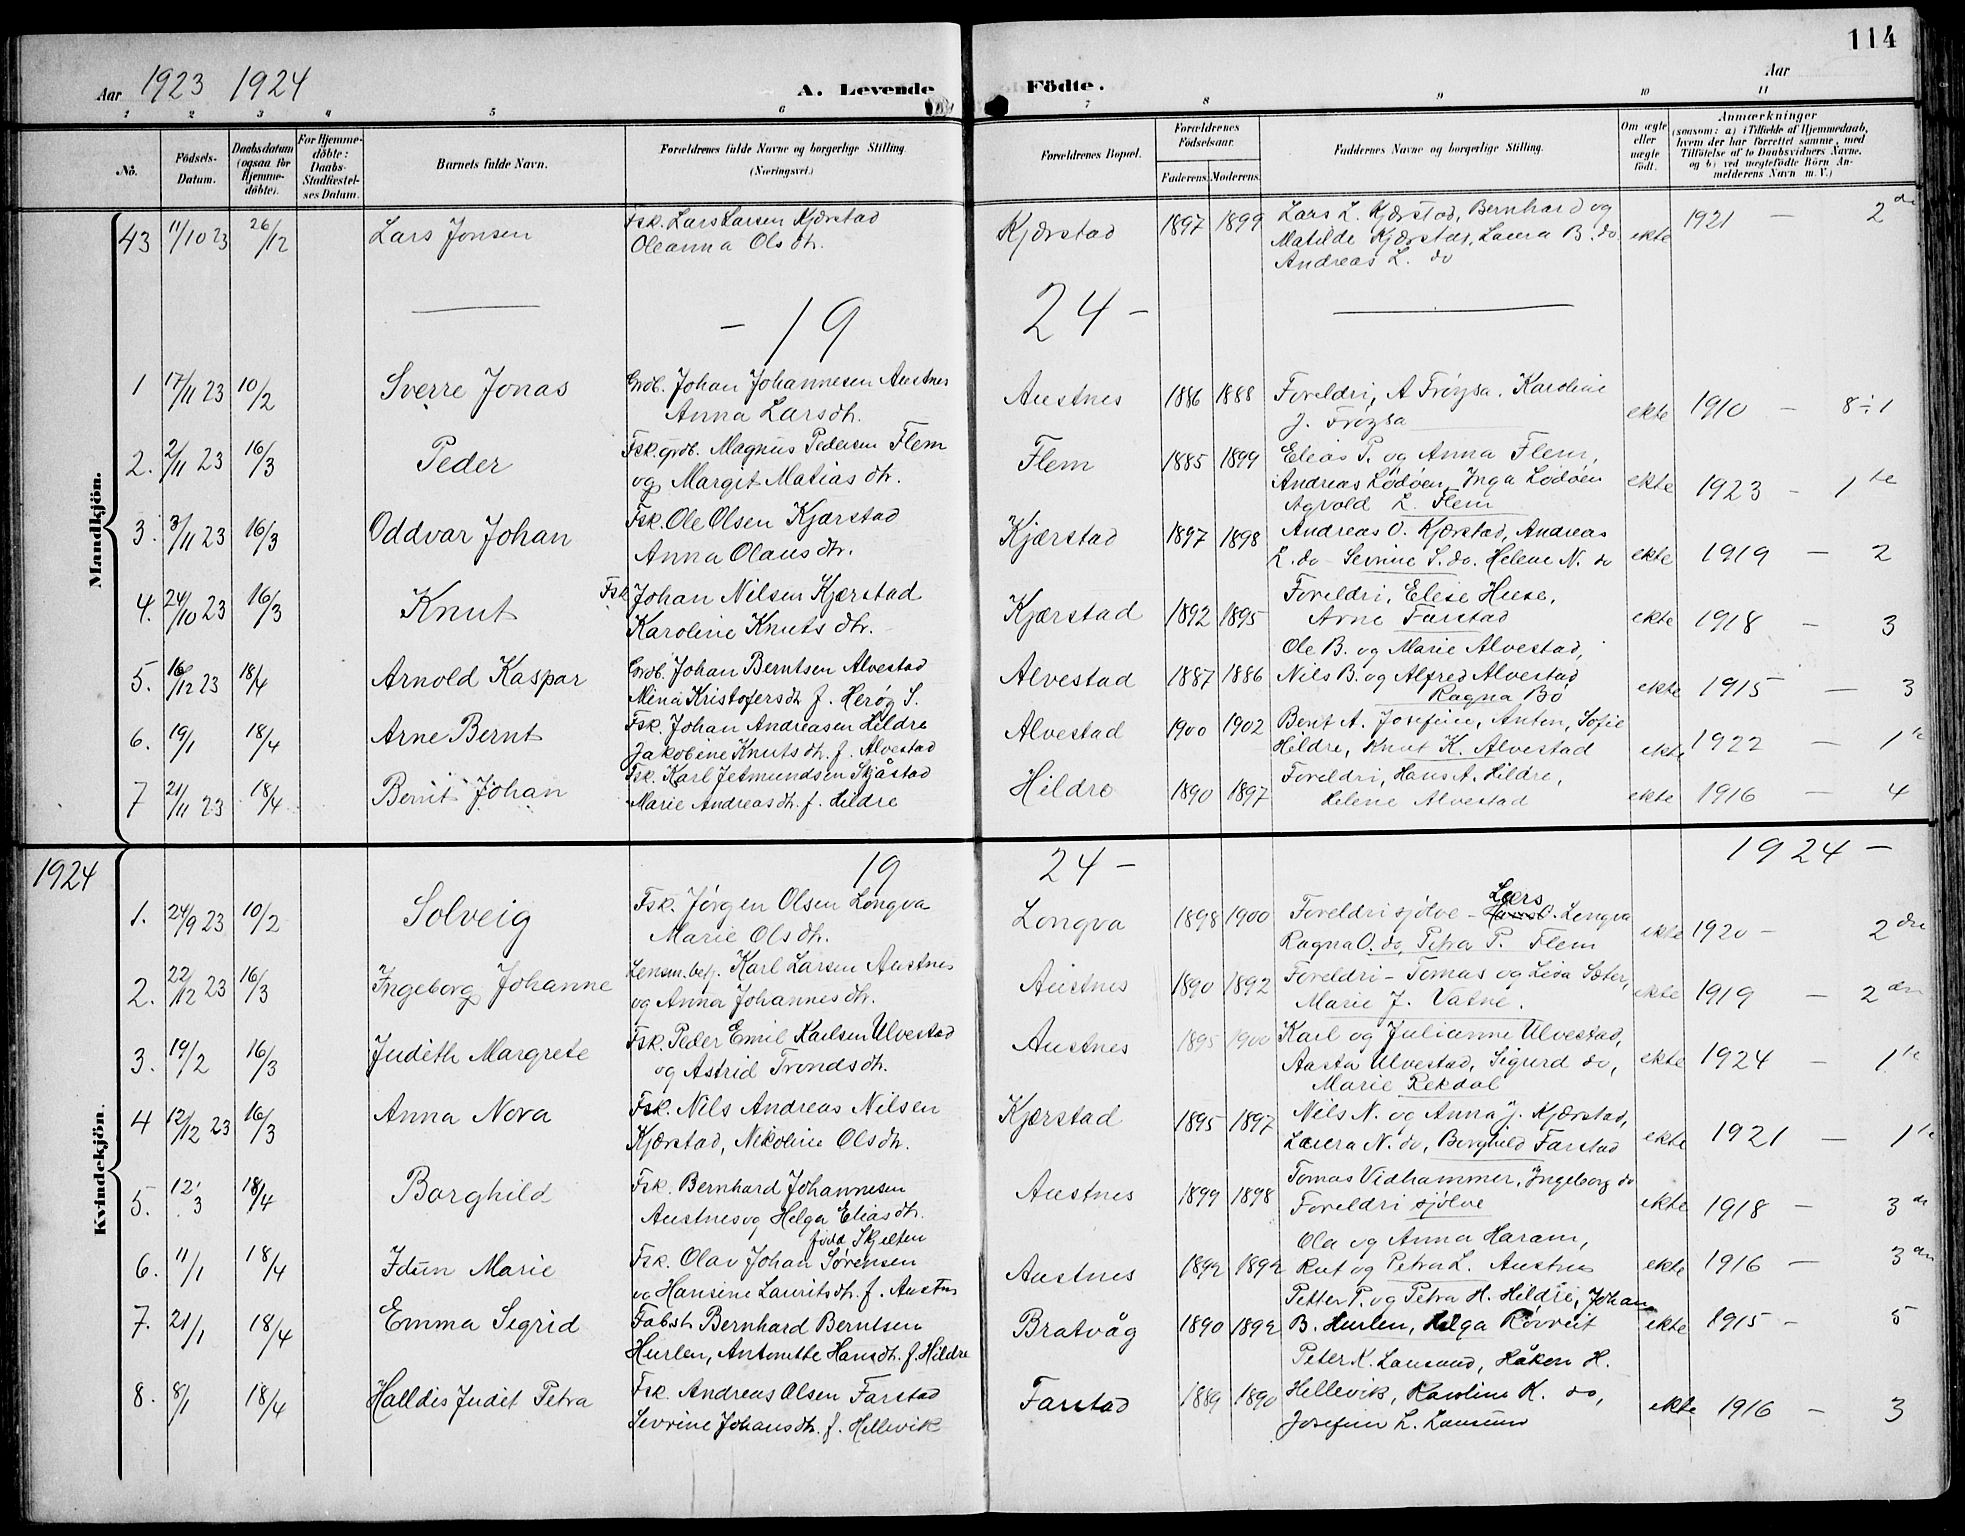 114
Aar 1923 1924
A. Levende Födte.
Aar
1 2 3 4 5 6 7 8 9 10 11
No.
Födsels-Datum.
Daabsdatum (ogsaa for Hjemme-döbte).
For Hjemme-döbte: Daabs-Stadfæstel-ses Datum.
Barnets fulde Navn.
Forældrenes fulde Navne og borgerlige Stilling (Næringsvei.)
Forældrenes Bopæl.
Forældrenes Födselsaar.
Faderens. Moderens.
Faddernes Navne og borgerlige Stilling.
Om ægte eller uægte födt.
Anmærkninger
(saasom: a) i Tilfælde af Hjemmedaab, hvem der har forrettet samme, med Tilföielse af to Daabsvidners Navne. og b) ved uægtefödte Börn An-melderens Navn m. V.)
Mandkjön.
43 11/10 23 26/12 Lars Jonsen Fsk. Lars Larsen Kjærstad Oleanna Olsdtr. Kjærstad 1897 1899 Lars L. Kjærstad, Bernhard og Matilde Kjærstad, Laura B. do Andreas L. do ekte 1921 — 2 dre
— 19 24 —
1 17/11 23 10/2 Sverre Jonas Grdb. Johan Johannesen Austnes Anna Larsdtr. Austnes 1886 1888 Foreldri, A Frøysa. Karoline J. Frøysa ekte 1910 — 8÷1
2. 2/11 23 16/3 Peder Fsk. grdb. Magnus Pedersen Flem og Margit Matiasdtr. Flem 1885 1899 Elias P. og Anna Flem, Andreas Lødøen, Inga Lødøen Agvold L. Flem ekte 1923 — 1te
3. 3/11 23 16/3 Oddvar Johan Fsk. Ole Olsen Kjærstad Anna Olausdtr. Kjærstad 1897 1898 Andreas O. Kjærstad, Andreas L. do Sevrine S. do. Helene N. do ekte 1919 — 2
4. 24/10 23 16/3 Knut Fsk. Johan Nilsen Kjærstad Karoline Knutsdtr. Kjærstad 1892 1895 Foreldri, Elise Huse, Arne Farstad ekte 1918 — 3
5. 16/12 23 18/4 Arnold Kaspar Grdb. Johan Berntsen Alvestad Mina Kristofersdtr f. Herøy S. Alvestad 1887 1886 Ole B. og Marie Alvestad, Nils B. og Alfred Alvestad Ragna Bø ekte 1915 — 3
6. 19/1 18/4 Arne Bernt Fsk. Johan Andreasen Hildre Jakobine Knutsdtr. f. Alvestad Alvestad 1900 1902 Bernt A. Josefine, Anton, Sofie Hildre, Knut K. Alvestad ekte 1922 — 1te
7 21/11 23 18/4 Bernt Johan Fsk. Karl Jetmundsen Skjåstad Marie Andreasdtr. f. Hildre Hildre 1890 1897 Foreldri, Hans A. Hildre, Helene Alvestad ekte 1916 — 4
1924 19 24 — 1924 —
Kvindekjön.
1. 24/9 23 10/2 Solveig Fsk. Jørgen Olsen Longva Marie Olsdtr. Longva 1898 1900 Foreldri sjølve - Lars O. Longva Ragna O. do, Petra P. Flem ekte 1920 — 2 dre
2. 22/12 23 16/3 Ingeborg Johanne Lensm. betj. Karl Larsen Austnes og Anna Johannesdtr. Austnes 1890 1892 Foreldri - Tomas og Lisa Sæter, Marie J. Vatne. ekte 1919 — 2 dre
3. 19/2 16/3 Judith Margrete Fsk. Peder Emil Karlsen Ulvestad og Astrid Trondsdtr. Austnes 1895 1900 Karl og Julianne Ulvestad, Aasta Ulvestad, Sigurd do, Marie Rekdal ekte 1924 — 1te
4 12/12 23 16/3 Anna Nora Fsk. Nils Andreas Nilsen Kjærstad, Nikoline Olsdtr. Kjærstad 1895 1897 Nils N. og Anna J. Kjærstad, Laura N. do, Borghild Farstad ekte 1921 — 1te
5. 12/3 18/4 Borghild Fsk. Bernhard Johannesen Austnes og Helga Eliasdtr. fødd Skjelten Austnes 1899 1898 Tomas Vidhammer, Ingeborg do Foreldri sjølve ekte 1918 — 3 dre
6. 11/1 18/4 Idun Marie Fsk. Olav Johan Sørensen og Hansine Lauritsdtr. f. Austnes Austnes 1892 1892 Ola og Anna Haram, Rut og Petra L. Austnes ekte 1916 — 3 dre
7. 21/1 18/4 Emma Sigrid Fabst Bernhard Berntsen Hurlen, Antonette Hansdtr. f. Hildre Bratvåg 1890 1892 Petter P. og Petra H. Hildre, Johan B. Hurlen, Helga Rørveit ekte 1915 — 5
8. 8/1 18/4 Halldis Judit Petra Fsk. Andreas Olsen Farstad Sevrine Johansdtr. f. Hellevik Farstad 1889 1890 Peter K. Lausund, Håkon H. Hellevik, Karoline K. do, Josefine L. Lausund ekte 1916 — 3